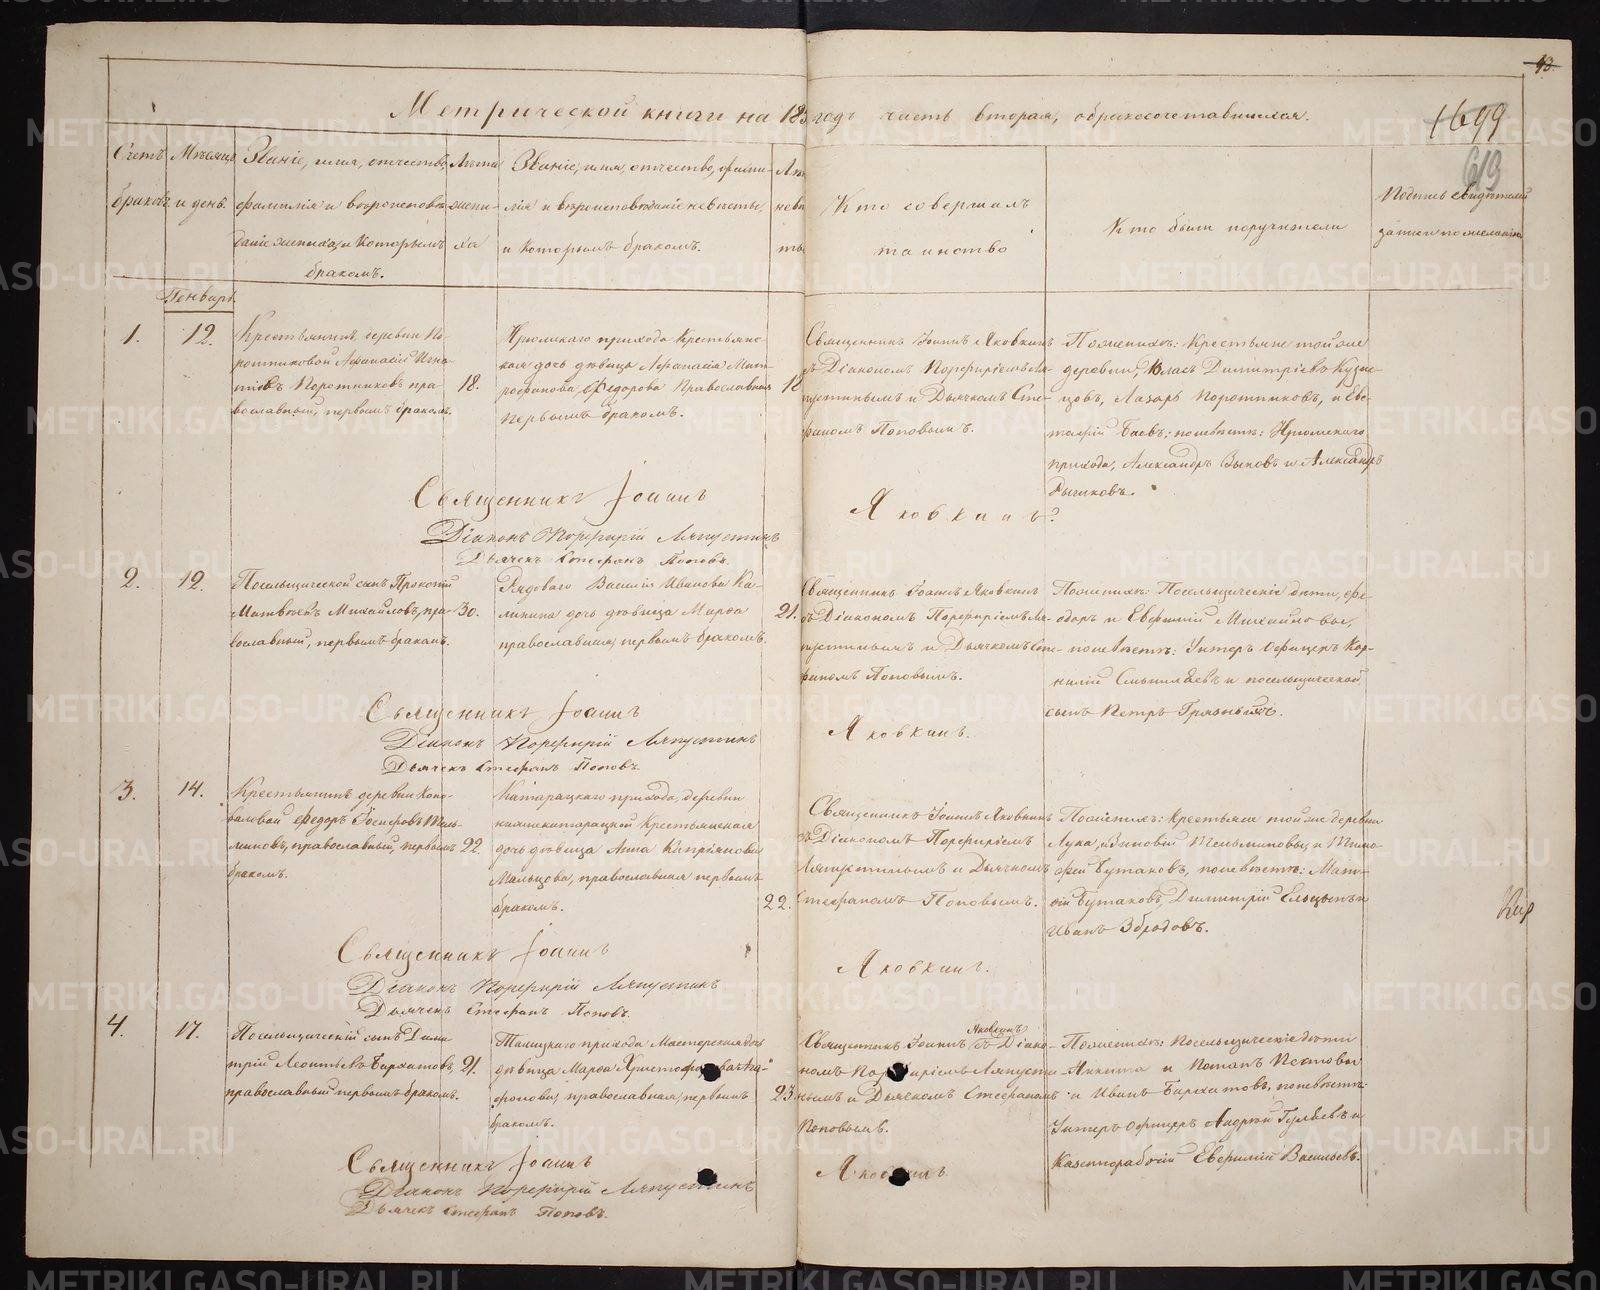 93.
Метрической книги на 185 годъ часть вторая, о бракосочетавшихся.
1699
613
Счетъ браковъ
Мѣсяцъ и день.
Званіе, имя, отчество,
фамилія и вѣроисповѣ-
даніе жениха, и которымъ
бракомъ.
Лѣта
жени-
ха
Званіе, имя, отчество, фами-
лія и вѣроисповѣданіе невѣсты,
и которымъ бракомъ.
Лѣ
невѣ
ты
Кто совершалъ
таинство
Кто были поручители
Подпись свидѣтелей
записи по желанію
Генварь
1.
12.
Крестьянинъ деревни По-
ротниковой Афанасій Игна-
тіевъ Поротниковъ пра-
вославный, первымъ бракомъ.
18.
прихода Крестьянс-
кая дочь дѣвица Афанасія Мит-
рофанова Федорова Православная
первымъ бракомъ.
18
Священникъ Іоаннъ Яковкинъ
съ Діакономъ Порфиріемъ Ля-
пустинымъ и Дьячкомъ Сте-
фаномъ Поповымъ.
По женихѣ: Крестьяне той же
деревни, Власъ Димитріевъ Кузне-
цовъ, Лазарь Поротниковъ, и Ев-
Баевъ; по невѣстѣ:
прихода, Александръ Зыковъ и Александръ
Рычковъ.
Священникъ Іоаннъ
Яковкинъ
Діаконъ Порфирій Ляпустинъ
Дьячекъ Стефанъ Поповъ.
2.
12.
Посельщической сынъ Прокопій
Матвѣевъ Михайловъ, пра-
вославный, первымъ бракомъ.
30.
Рядоваго Василія Иванова Ка-
линина дочь дѣвица Марѳа
православная, первымъ бракомъ.
21.
Священникъ Іоаннъ Яковкинъ
съ Діакономъ Порфиріемъ Ля-
пустинымъ и Дьячкомъ Сте-
фаномъ Поповымъ.
По женихѣ: Посельщическіе дѣти, Фе-
доръ и Евфимій Михайловы,
по невѣстѣ: Унтеръ Офицеръ Кор-
нилій и посельщической
сынъ Петръ
Священникъ Іоаннъ
Яковкинъ.
Діаконъ Порфирій Ляпустинъ
Дьячекъ Стефанъ Поповъ.
3.
14.
Крестьянинъ деревни Коно-
валовой Федоръ Іосифовъ Тель-
миновъ, православный, первымъ
бракомъ.
22.
Катарацкаго прихода, деревни
нижнекатарацкой Крестьянская
дочь дѣвица Анна Кипріянова
Мальцова, православная первымъ
бракомъ.
22.
Священникъ Іоаннъ Яковкинъ
съ Діакономъ Порфиріемъ
Ляпустинымъ и Дьячкомъ
Стефаномъ Поповымъ.
По женихѣ: Крестьяне той же деревни
Лука, и Зиновій Тельминовы и Тимо-
фей Бутаковъ, по невѣстѣ: Мат-
вій Бутаковъ, Димитрій Ельцынъ и
Иванъ Збродовъ.
Священникъ Іоаннъ
Яковкинъ.
Діаконъ Порфирій Ляпустинъ
Дьячекъ Стефанъ Поповъ.
4.
17.
Посельщическій сынъ Дими-
трій Леонтьевъ Бархатовъ,
православный первымъ бракомъ.
21.
Талицкаго прихода Мастерская дочь
дѣвица Марѳа Христофорова Ага-
фонова, православная, первымъ
бракомъ.
23
Священникъ Іоаннъ Яковкинъ съ Діако-
номъ Порфиріемъ Ляпусти-
нымъ и Дьячкомъ Стефаномъ
Поповымъ.
По женихѣ: Посельщическіе дѣти
Никита и Потапъ
и Иванъ Бархатовъ, по невѣстѣ:
Унтеръ Офицеръ Андрей Гуляевъ и
Евфимій Васильевъ.
Священникъ Іоаннъ
Яковкинъ.
Діаконъ Порфирій Ляпустинъ
Дьячекъ Стефанъ Поповъ.
METRIKI.GASO-URAL.RU